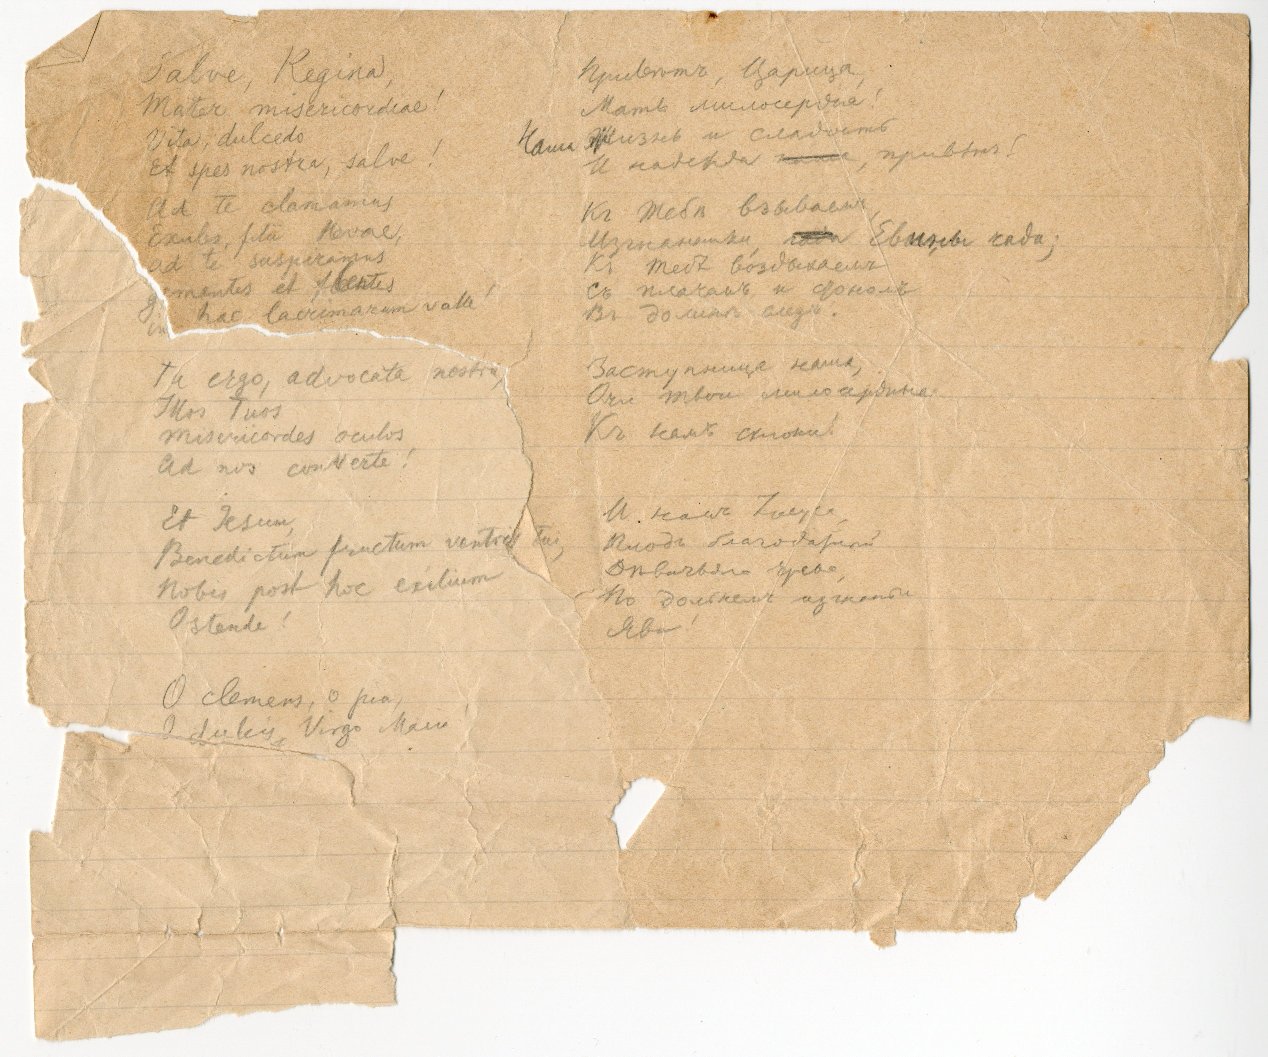 Salve, Regina,
Mater misericordiae!
Vita, dulcedo
Et spes nostra, salve!
Ad te clamamus
Exules, filii Hevae,
ad te suspiramus
gementes et flentes
in hac lacrimarum valle!
Tu ergo, advocata nostra,
Illos Tuos
misericordes oculos
ad nos converte!
Et Jesum,
Benedictum fructum ventris tui,
Nobis post hoc exilium
Ostende!
O clemens, o pia,
O dulcis, Virgo Maria
Привѣтъ, Царица,
Мать милосердья!
Наша жизнь и сладость
И надежда, привѣтъ!
Къ Тебѣ взываемъ,
Изгнанники, Евины чада;
Къ Тебѣ воздыхаемъ
Съ плачемъ и стономъ
Въ долинѣ слезъ.
Заступница наша,
Очи твои милосердные
Къ намъ склони!
И намъ Іисуса,
Плодъ благодатный
чрева,
По дольнемъ изгнаньи
Яви!